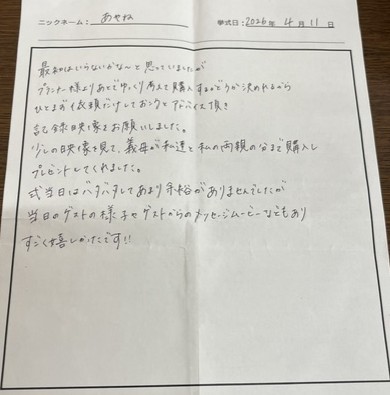 ニックネーム： あやね 挙式日： 2026年 4月 11日
最初はいらないかな〜と思っていましたが
プランナー様よりあとでゆっくり考えて購入するかどうか決めれるから
ひとまず依頼だけしておこうとアドバイス頂き
記録映像をお願いしました。
少しの映像を見て、義母が私達と私の両親の分まで購入し
プレゼントしてくれました。
式当日はバタバタしてあまり余裕がありませんでしたが
当日のゲストの様子やゲストからのメッセージムービーなどもあり
すごく嬉しかったです!!